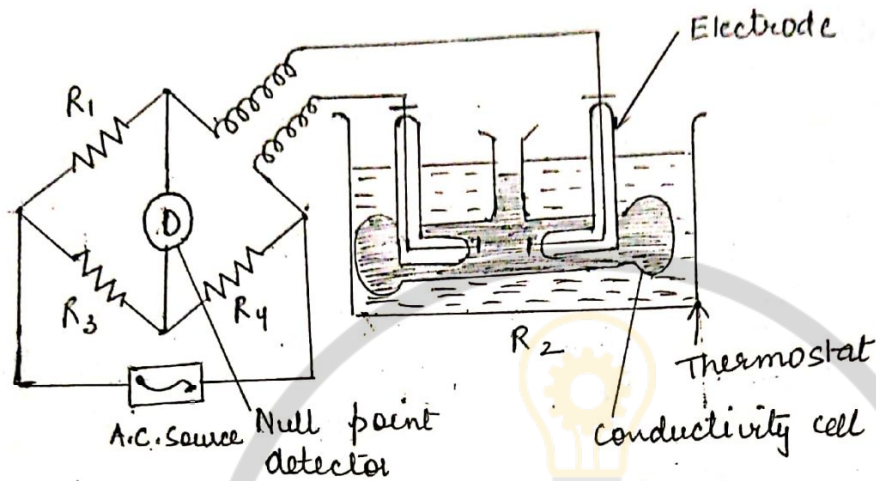 Electrode
R1
D
R3
R4
R2
Thermostat
A.C. Source
Null point
detector
Conductivity cell